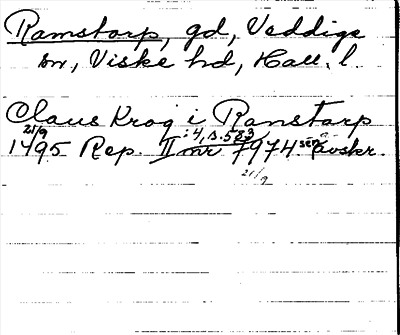 Ramstorp, gd, Veddige
sn, Viske hd, Hall. l.
Claus Krog i Ramstorp
21/9
: 4, s. 583
1495 Rep. II nr 7974 sen avskr.
21/9